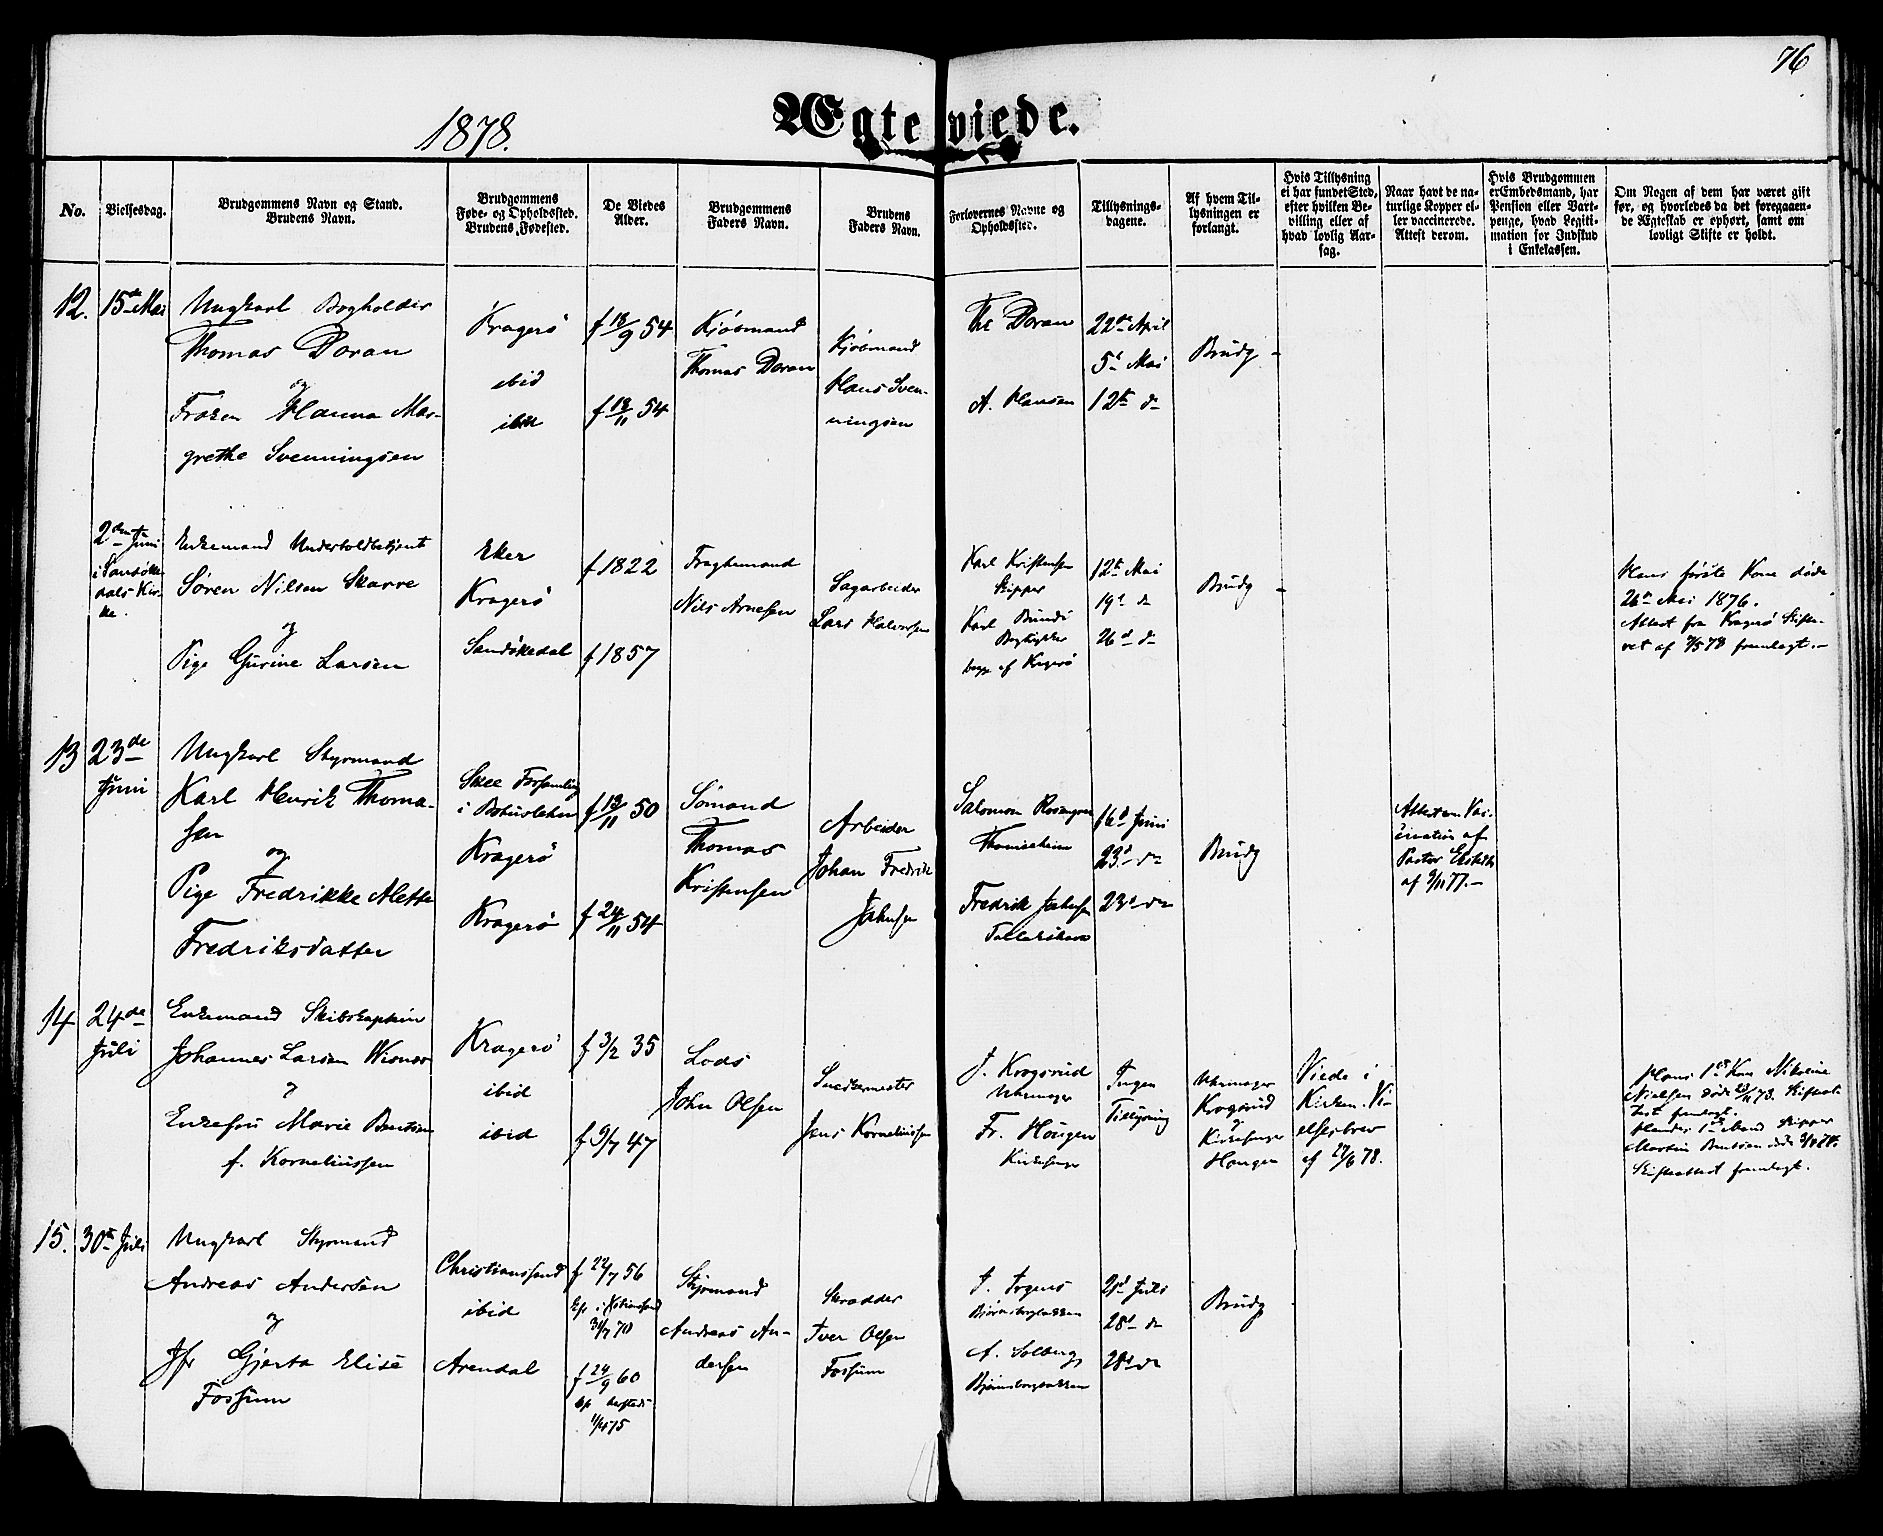 76
1878.
Ægteviede.
No.
Vielsesdag.
Brudgommens Navn og Stand.
Brudens Navn.
Brudgommens
Føde- og Opholdssted.
Brudens Fødested.
De Viedes
Alder.
Brudgommens
Faders Navn.
Brudens
Faders Navn.
Forlovernes Navne og
Opholdssted.
Tillysnings-
dagene.
Af hvem Til-
lysningen er
forlangt.
Hvis Tillysning
ei har fundet Sted,
efter hvilken Be-
villing eller af
hvad lovlig Aar-
sag.
Naar havt de na-
turlige Kopper el-
ler vaccinerede.
Attest derom.
Hvis Brudgommen
er Embedsmand, har
Pension eller Vart-
penge, hvad Legiti-
mation for Indskud
i Enkekassen.
Om Nogen af dem har været gift
før, og hvorledes da det foregaaen-
de Ægteskab er ophørt, samt om
lovligt Skifte er holdt.
12.
15de Mai
Ungkarl Bogholder
Thomas Doran
og
Frøken Hanna Mar-
grethe Svenningsen
Kragerø
ibid
ibid
f 18/9 54
f 18/11 54
Kjøbmand
Thomas Doran
Kjøbmand
Hans Sven-
ningsen
Th Doran
A. Hansen
22de April
5te Mai
12te d-
Brudg -
2den Juni
i Sandøke-
dals Kir-
ke.
Enkemand Undertoldbetjent
Søren Nilsen Skarre
og
Pige Gurine Larsen
Eker
Kragerø
Sandøkedal
f 1822
f 1857
Fragtemand
Nils Arnesen
Sagarbeider
Lars Halvorsen
Karl Kristensen
Skipper
Karl Bundi
begge af Kragerø
12te Mai
19de d-
26de d-
Brudg -
Hans første Kone døde
26de Mai 1876.
Attest fra Kragerø Skifte-
ret af 7/5 78 fremlagt. -
13
23de
Juni
Ungkarl Styrmand
Karl Henrik Thoma-
sen
og
Pige Fredrikke Alette
Fredriksdatter
Skee Forsamling
i Bohuslehn
Kragerø
Kragerø
f 18/11 50
f 24/11 54
Sømand
Thomas
Kristensen
Arbeider
Johan Fredrik
Jahnsen
Salomon
Fredrik Jahnsen
16de Juni
23de d-
23de d-
Brudg
Attest om Vac-
cination af
Pastor
af 9/11 77. -
14
24de
Juli
Enkemand Skibskaptein
Johannes Larsen Wisnes
og
Enkefru Marie Bentsen
f. Korneliussen
Kragerø
ibid
ibid
f 3/2 35
f 9/7 47
Lods
John Olsen
Snedkermester
Jens Korneliussen
J. Krogsrud
Uhrmager
Fr. Hougen
Kirkesanger
Ingen
Tillysning
Uhrmager
Krogsrud
og
Kirkesanger
Hougen
Viede i
Kirken. Vi-
elsesbrev
af 22/6 78.
Hans 1ste Kone Nikoline
Nielsen døde 73. Skifteat-
test fremlagt.
Hendes 1ste Mand Skipper
Martin Bentsen døde
Skifteattest fremlagt.
15.
30te Juli
Ungkarl Styrmand
Andreas Andersen
og
Jfr Gjerta Elise
Fossum
Christianssand
ibid
Arendal
f 22/7 56
31/7 70
f 24/9 60
Styrmand
Andreas An-
dersen
Skrædder
Iver Olsen
Fossum
Bjørnsborgbakken
A. Solberg
Bjørnsborgbakken
21de Juli
28de d-
28de d-
Brudg